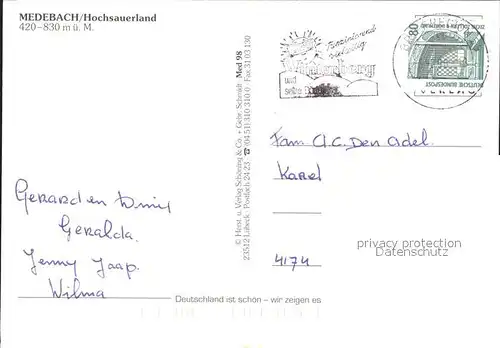 MEDEBACH/Hochsauerland
420–830 m ü. M.
Faszinierend
vielseitig
Winterberg
und
seine Dörfer
80
DEUTSCHE BUNDESPOST
ZECHE ZOLLERN II DORTMUND
© Herst. u. Verlag Schöning & Co. + Gebr. Schmidt Med 98
23512 Lübeck · Postfach 24 23 ☎ (04 51) 310 310 · Fax 31 03 130
Fam A.C. Den Adel.
Karel
4174
privacy protection
Datenschutz
Gerard en
Geralda.
Jenny Jaap.
Wilma
Deutschland ist schön – wir zeigen es